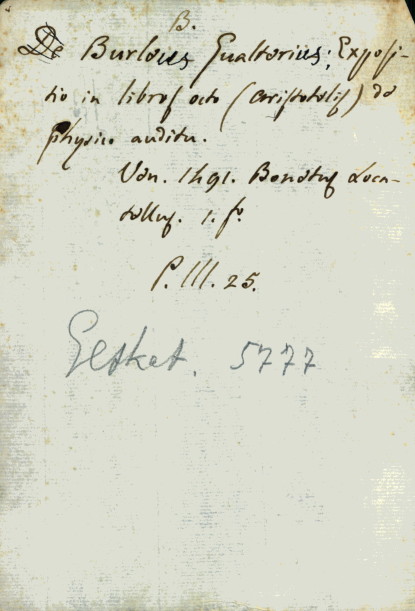 B.
De Burlaeus Gualterius; Exposi-
tio in libros octo (Aristotelis) de
physico auditu.
Ven. 1491. Bonetus Loca-
tellus. 1. fº
P. III. 25.
Geskat. 5777